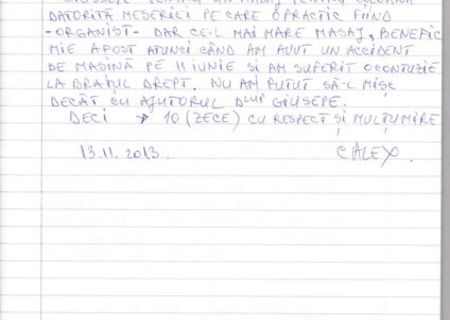 DATORITĂ MESERICI PE CARE O PRACTIC FIIND
-ORGANIST- DAR CEL MAI MARE MASAJ, BENEFIC
MIE A FOST ATUNCI CÂND AM AVUT UN ACCIDENT
DE MAȘINĂ PE 11 IUNIE SI AM SUFERIT O CONTUZIE
LA BRAȚUL DREPT. NU AM PUTUT SĂ-L MIȘC
DECÂT CU AJUTORUL DLUI GIUSEPE.
DECI → 10 (ZECE) CU RESPECT ȘI MULȚUMIRE
13.11.2013. CALEX.